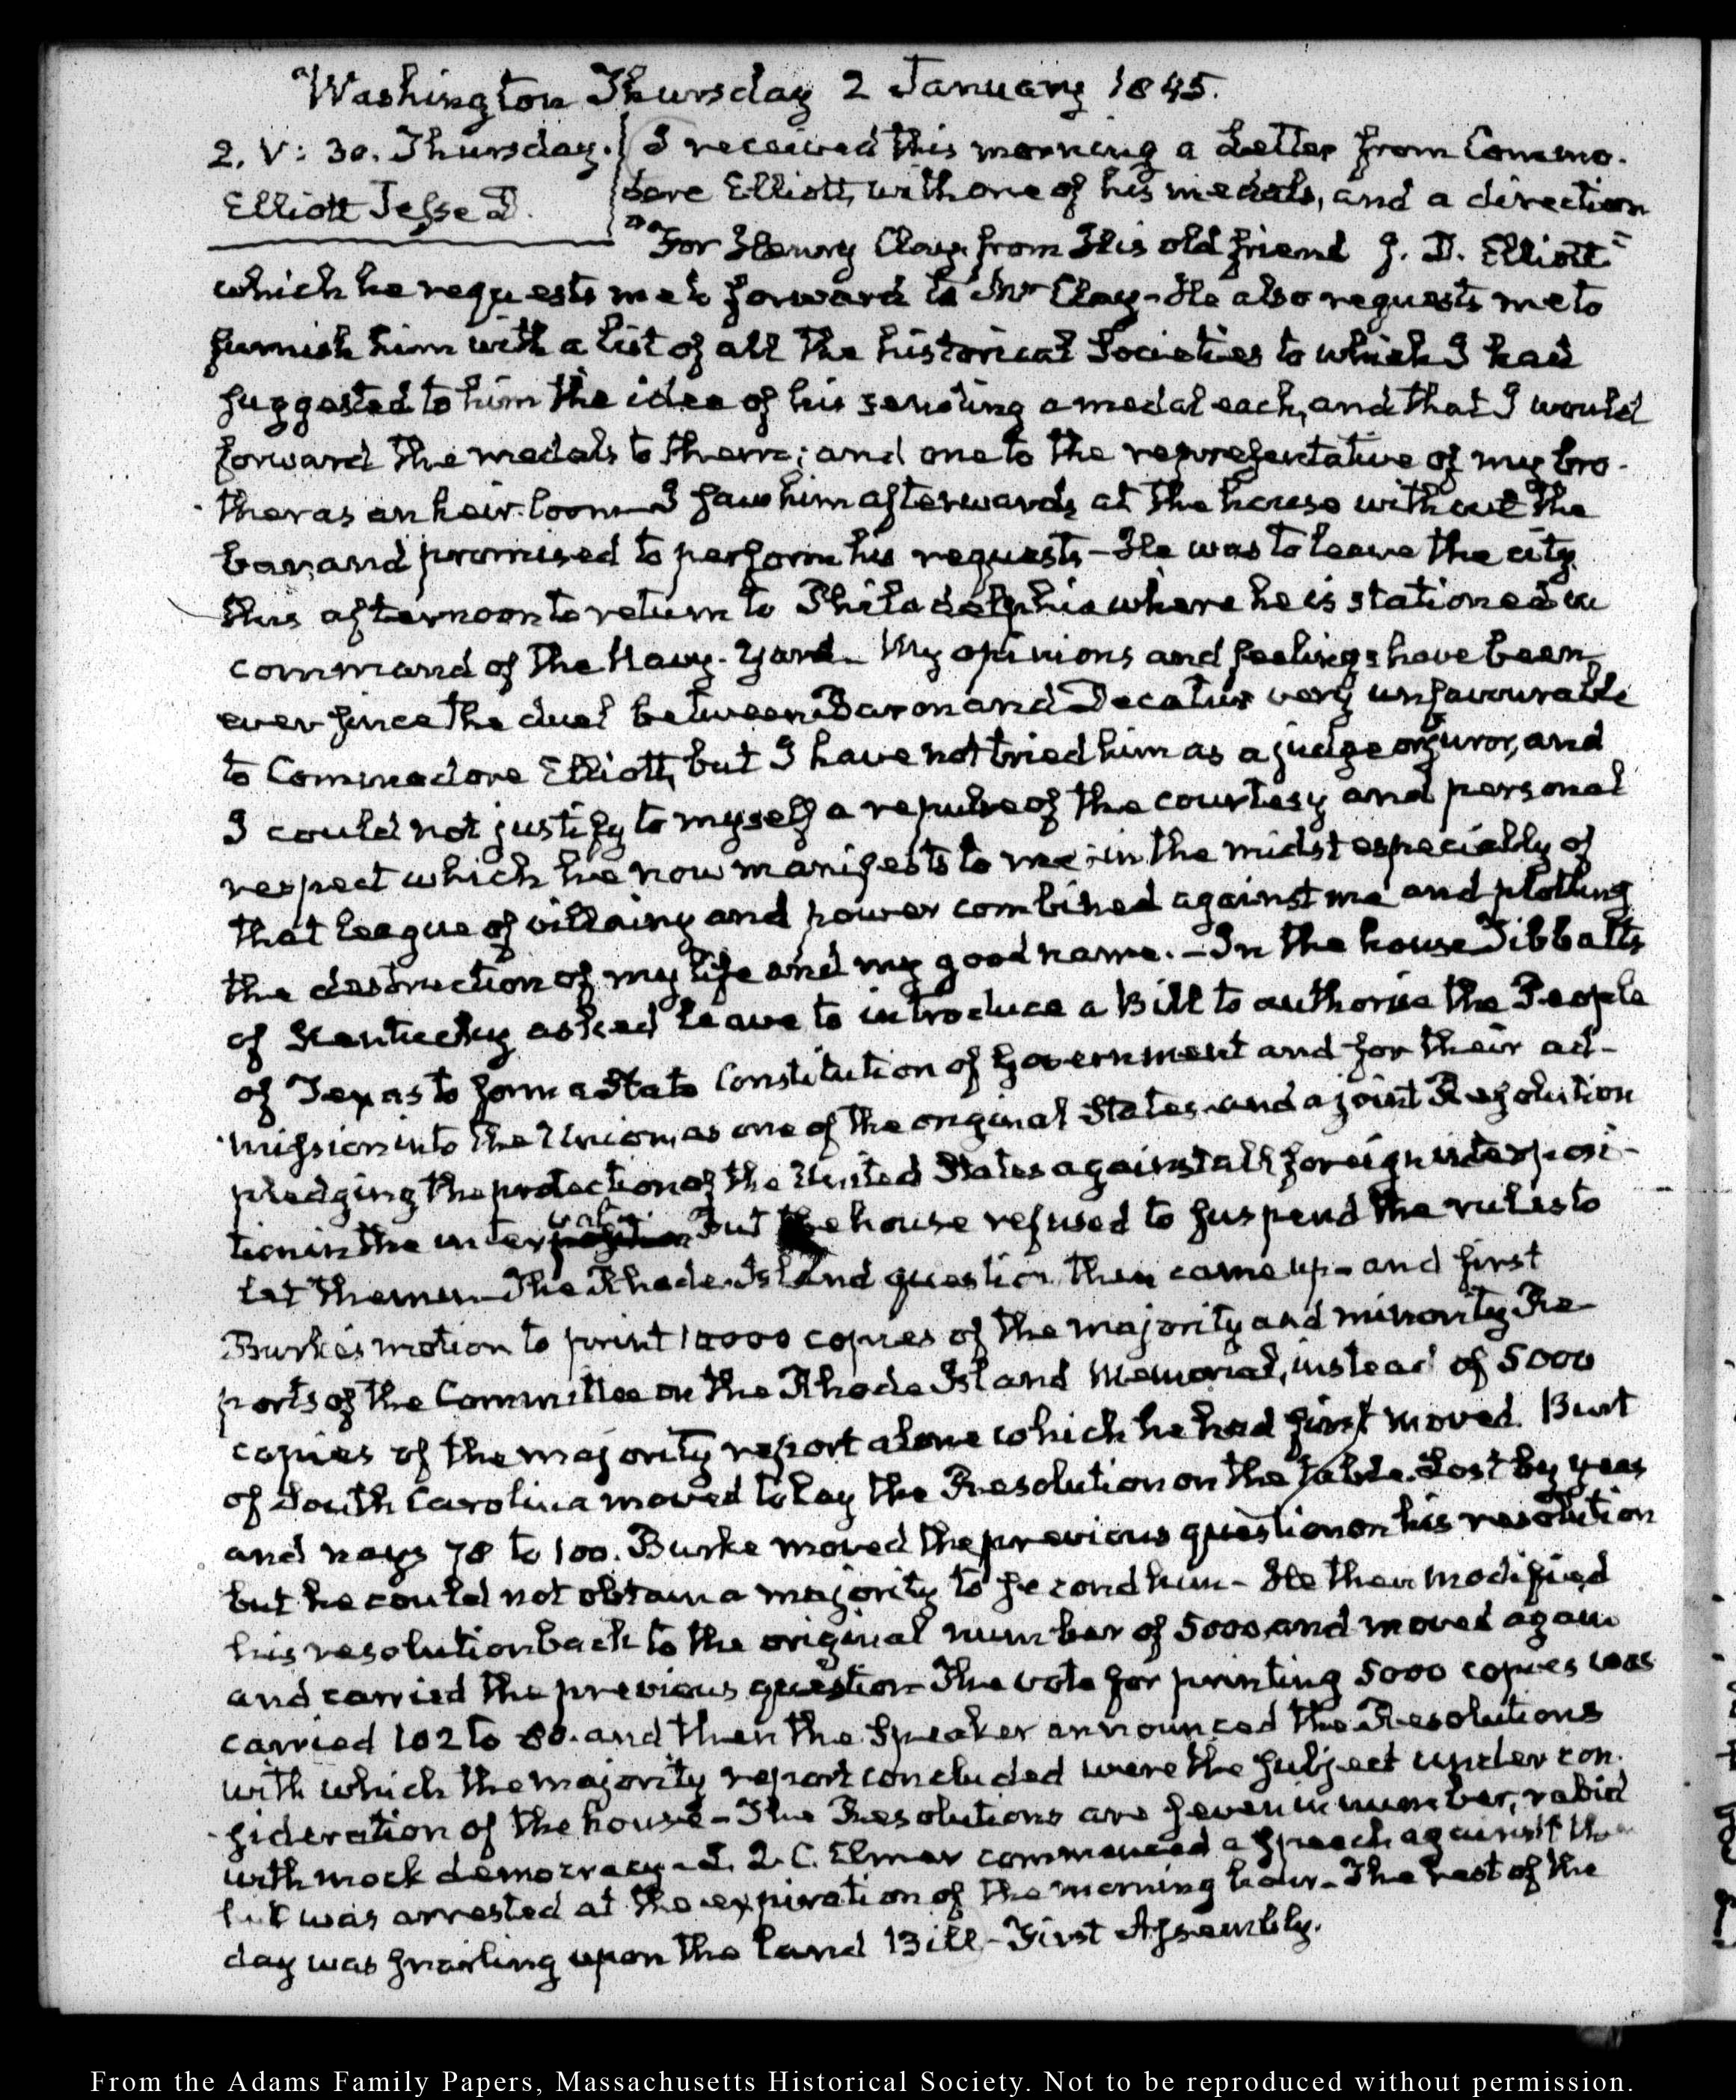 Washington Thursday 2 January 1845.
2. V: 30. Thursday.
Elliott Jesse D.
I received this morning a Letter from Commo-
dore Elliott, with one of his medals, and a direction
"For Henry Clay from His old friend J. D. Elliott"
which he requests me to forward to Mr Clay - He also requests me to
furnish him with a list of all the historical Societies to which I had
suggested to him the idea of his sending a medal each, and that I would
forward the medals to them; and one to the representative of my bro-
ther as an heir-loom - I saw him afterwards at the house without the
bar, and promised to perform his requests - He was to leave the city
this afternoon to return to Philadelphia where he is stationed in
command of the Navy-Yard. My opinions and feelings have been
ever since the duel between Baron and Decatur very unfavourable
to Commodore Elliott, but I have not tried him as a judge or juror, and
I could not justify to myself a repulse of the courtesy and personal
respect which he now manifests to me; in the midst especially of
that league of villainy and power combined against me and plotting
the destruction of my life and my good name. - In the house Tibbatts
of Kentucky asked leave to introduce a Bill to authorise the People
of Texas to form a State Constitution of Government and for their ad-
mission into the Union, as one of the original States and a joint Resolution
pledging the protection of the United States against all foreign interposi-
tion in the interval. But the house refused to suspend the rules to
let them in - The Rhode-Island question then came up - and first
Burke's motion to print 10000 copies of the majority and minority Re-
ports of the Committee on the Rhode Island Memorial, instead of 5000
copies of the majority report alone which he had first moved. Burt
of South Carolina moved to lay the Resolution on the table. Lost by yeas
and nays 78 to 100. Burke moved the previous question on his resolution
but he could not obtain a majority to second him - He then modified
his resolution back to the original number of 5000 and moved again
and carried the previous question - The vote for printing 5000 copies was
carried 102 to 80. and then the Speaker announced the Resolutions
with which the majority report concluded were the subject under con-
sideration of the house - The Resolutions are seven in number, rabid
with mock democracy - L. Q. C. Elmer commenced a speech against them
but was arrested at the expiration of the morning hour - The rest of the
day was snarling upon the land Bill - First Assembly.
From the Adams Family Papers, Massachusetts Historical Society. Not to be reproduced without permission.